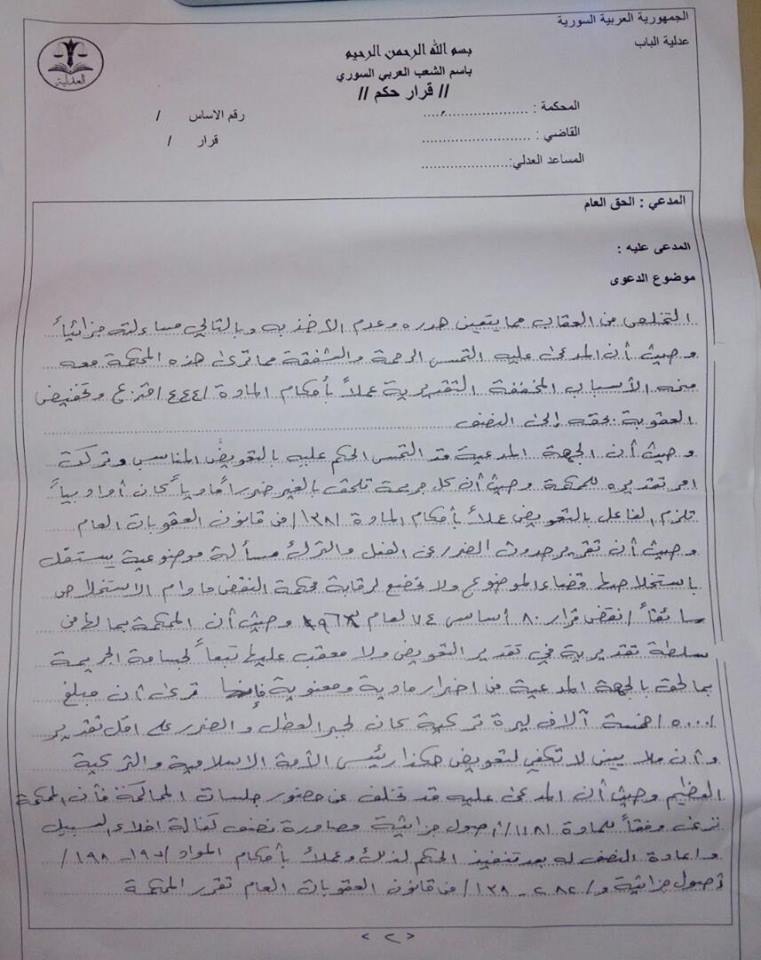 الجمهورية العربية السورية
عدلية الباب
بسم الله الرحمن الرحيم
باسم الشعب العربي السوري
// قرار حكم //
العدلية
المحكمة : ........................
رقم الاساس /
القاضي : ........................
قرار /
المساعد العدلي:........................
المدعي : الحق العام
المدعى عليه :
موضوع الدعوى
التخلص من العقاب مما يتعين هدره وعدم الاخذ به وبالتالي مساءلته جزائياً
وحيث أن المدعى عليه التمس الرحمة والشفقة مما ترى هذه المحكمة معه
منحه الأسباب المخففة التقديرية عملاً بأحكام المادة /٢٤٤/ ق.ع وتخفيض
العقوبة بحقه إلى النصف
وحيث أن الجهة المدعية قد التمس الحكم عليه بالتعويض المناسب وتركت
امر تقديره للمحكمة وحيث أن كل جريمة تلحق بالغير ضرراً مادياً كان أو ادبياً
تلزم الفاعل بالتعويض عملاً بأحكام المادة /١٣٨/ من قانون العقوبات العام
وحيث أن تقدير حدوث الضرر عن الفعل والترك مسألة موضوعية يستقل
باستخلاصها قضاء الموضوع ولا تخضع لرقابة محكمة النقض مادام الاستخلاص
سائغاً /نقض قرار ٨٠ أساسي ٧٤ لعام وحيث أن المحكمة بمالها من
سلطة تقديرية في تقدير التعويض ولا معقب عليها تبعاً لجسامة الجريمة
بما لحق بالجهة المدعية من اضرار مادية ومعنوية ترى أن مبلغ
/٥٠٠٠/ خمسة آلاف ليرة تركية كان لجبر العطل والضرر على اقل تقدير
وأن ملايين لا تكفي لتعويض هكذا رئيس الأمة الاسلامية والتركية
العظيم وحيث أن المدعى عليه قد تخلف عن حضور جلسات المحاكمة فأن المحكمة
ترى وفقاً للمادة /١١٨/ أصول جزائية مصادرة نصف كفالة اخلاء السبيل
واعادة النصف له بعد تنفيذ الحكم لذلك وعملاً بأحكام المواد /١٩٦ - ١٩٨/
أصول جزائية و/ ٢٨٢ - ١٣٨/ من قانون العقوبات العام تقرر المحكمة
< ٢ >